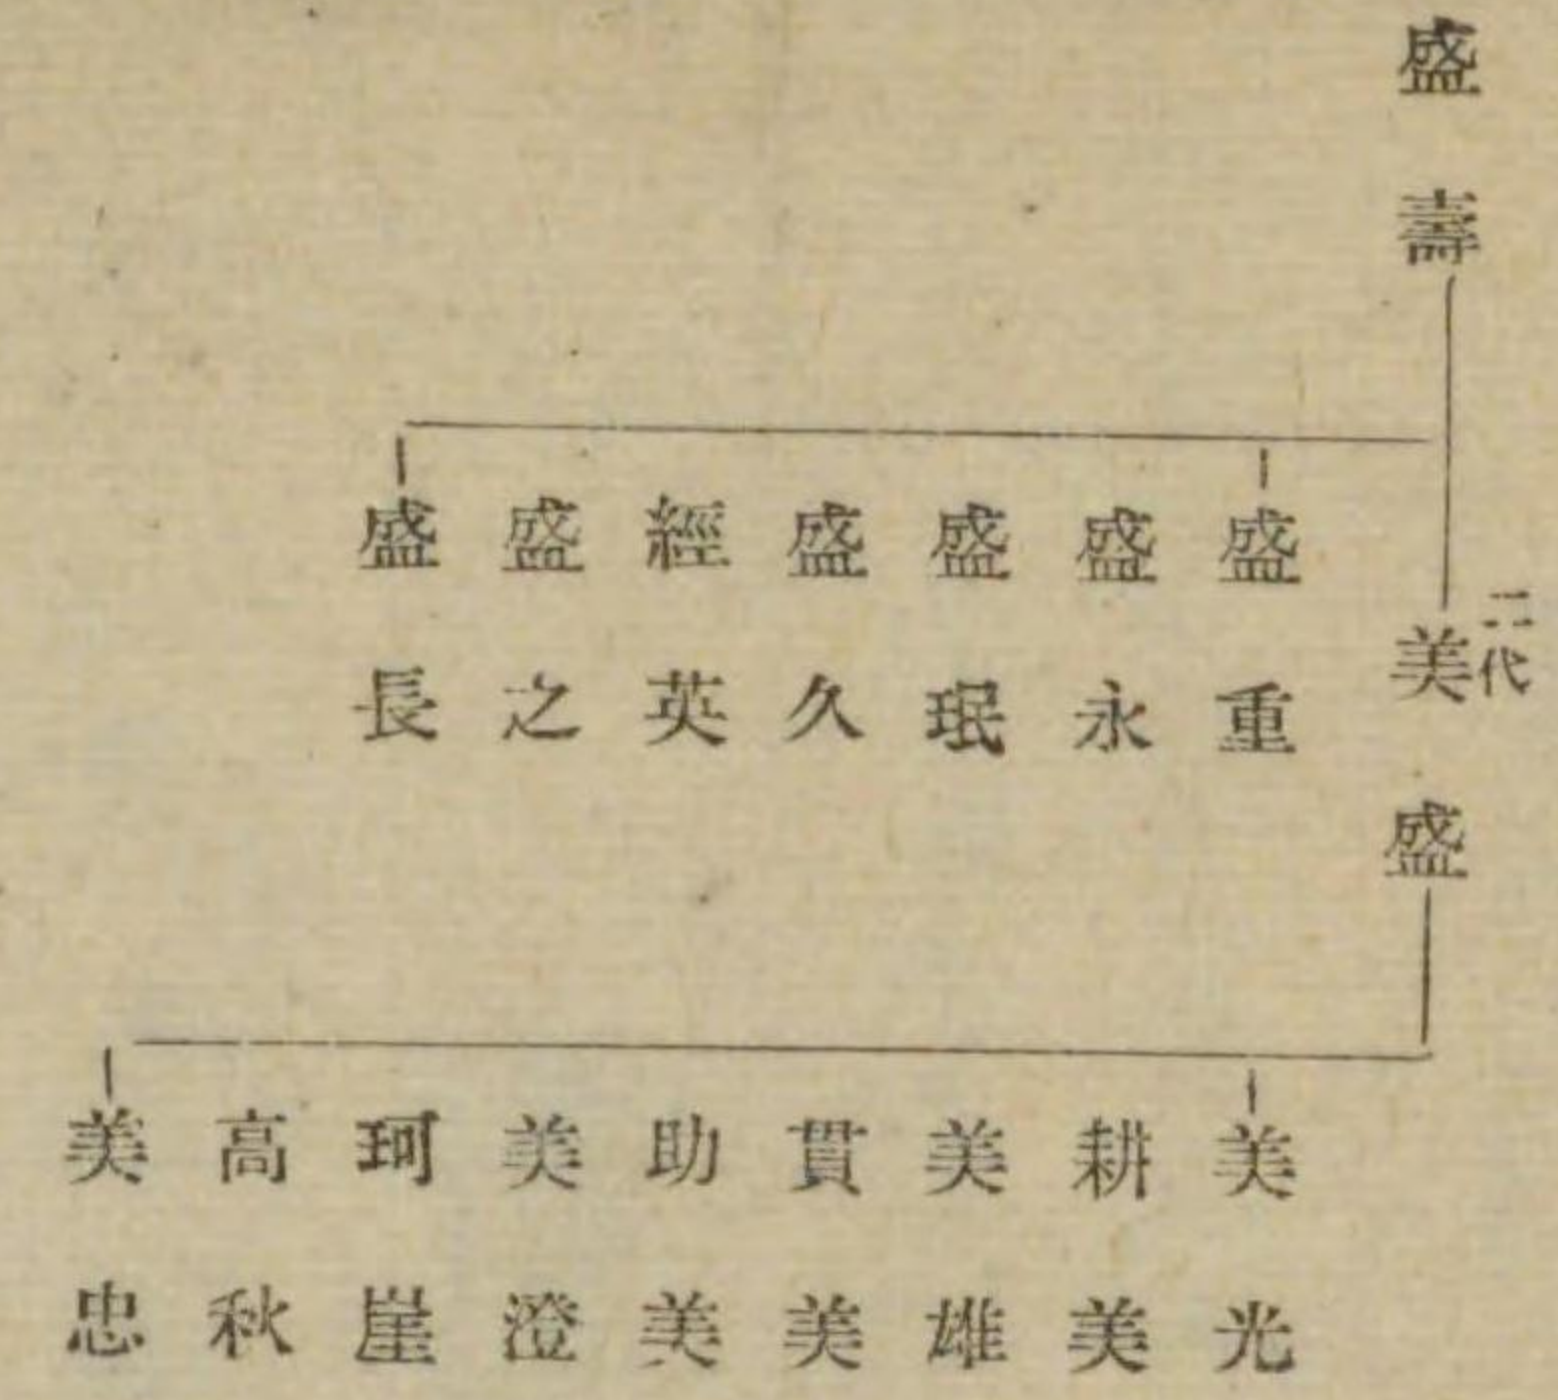 盛壽
二代
美盛
盛重
盛永
盛珉
盛久
經英
盛之
盛長
美光
耕美
美雄
貫美
助美
美澄
珂崖
高秋
美忠